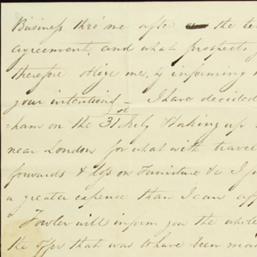 Business thro' me after the te
agreement, and what prospects
therefore oblige me, by informing
your intentions – I have decided
ham on the 31 July & taking up
near London for what with travel
forwards & loss on Furniture &c I f
a greater expense than I can aff
Fowler will inform you the whole
the offer that was to have been mad